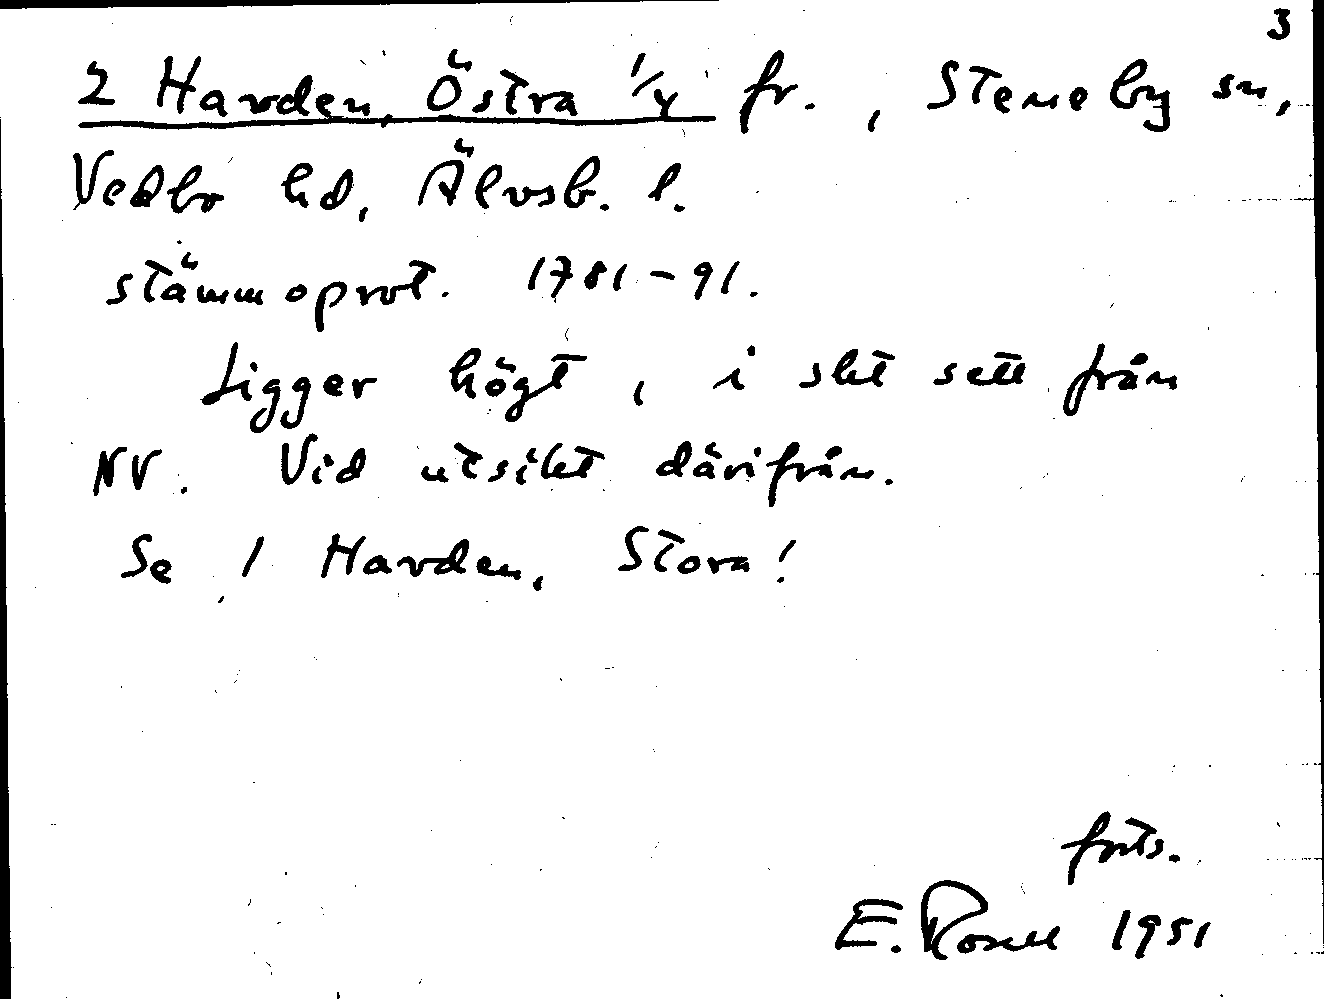 3
2 Harden, Östra 1/4 fr., Steneby sn,
Vedbo hd, Älvsb. l.
stämmoprot. 1781-91.
Ligger högt, i slut sett från
NV. Vid utsikt därifrån.
Se 1 Harden, Stora!
forts.
E. Rosell 1951